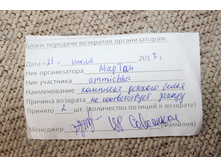 Бланк передачи возвратов организаторам.
Дата «21» июля 2017г.
Ник организатора МарТан
Ник участника ammichka
Наименование комплект детского белья
Причина возврата не соответствует заказу
Принято 2 шт. (количество позиций в возврате)
Менеджер (фамилия)